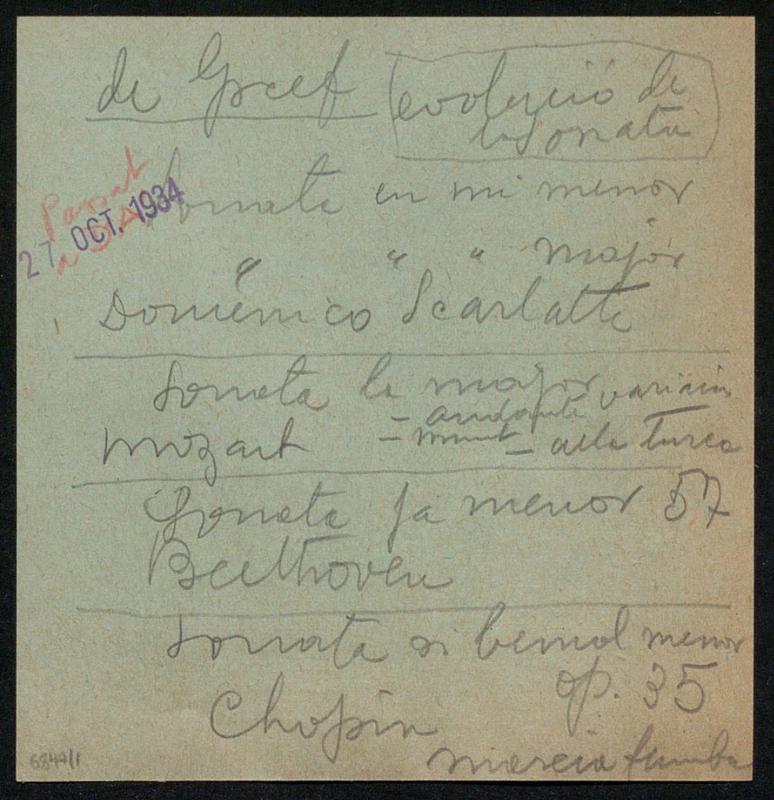 de Greef
evolució de
la Sonata
Passat
a
27 OCT. 1934
Sonata en mi menor
" " " major
Domenico Scarlatti
Sonata la major
variacin
- andante
Mozart - minuet - alla turca
Sonata fa menor 57
Beethoven
Sonata si bemol menor
op. 35
Chopin
marcia funebre
6844/1